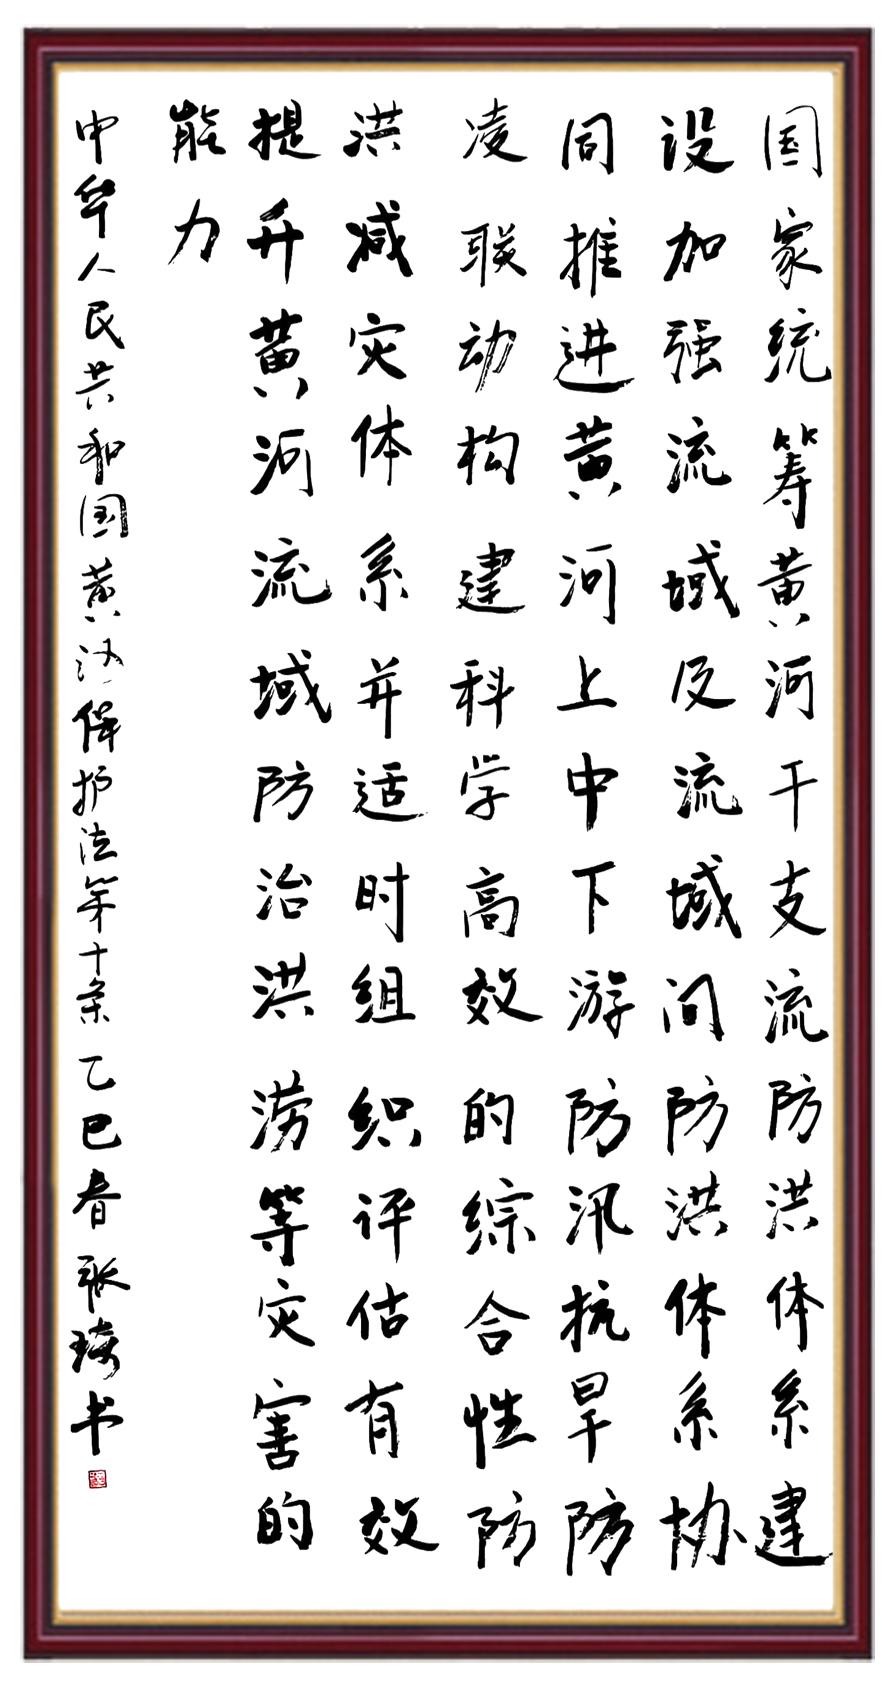 国家统筹黄河干支流防洪体系建
设加强流域及流域间防洪体系协
同推进黄河上中下游防汛抗旱防
凌联动构建科学高效的综合性防
洪减灾体系并适时组织评估有效
提升黄河流域防治洪涝等灾害的
能力
中华人民共和国黄河保护法第十条乙巳春张琦书